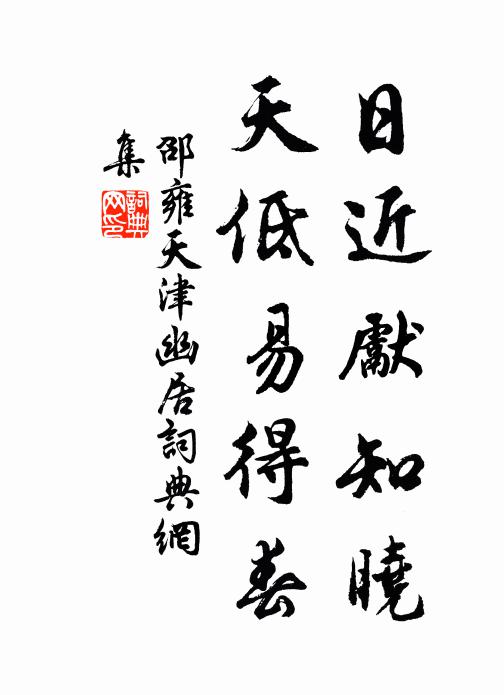 日近獻知曉
天低易得春
邵雍天津幽居詞典網
集
詞典
网印